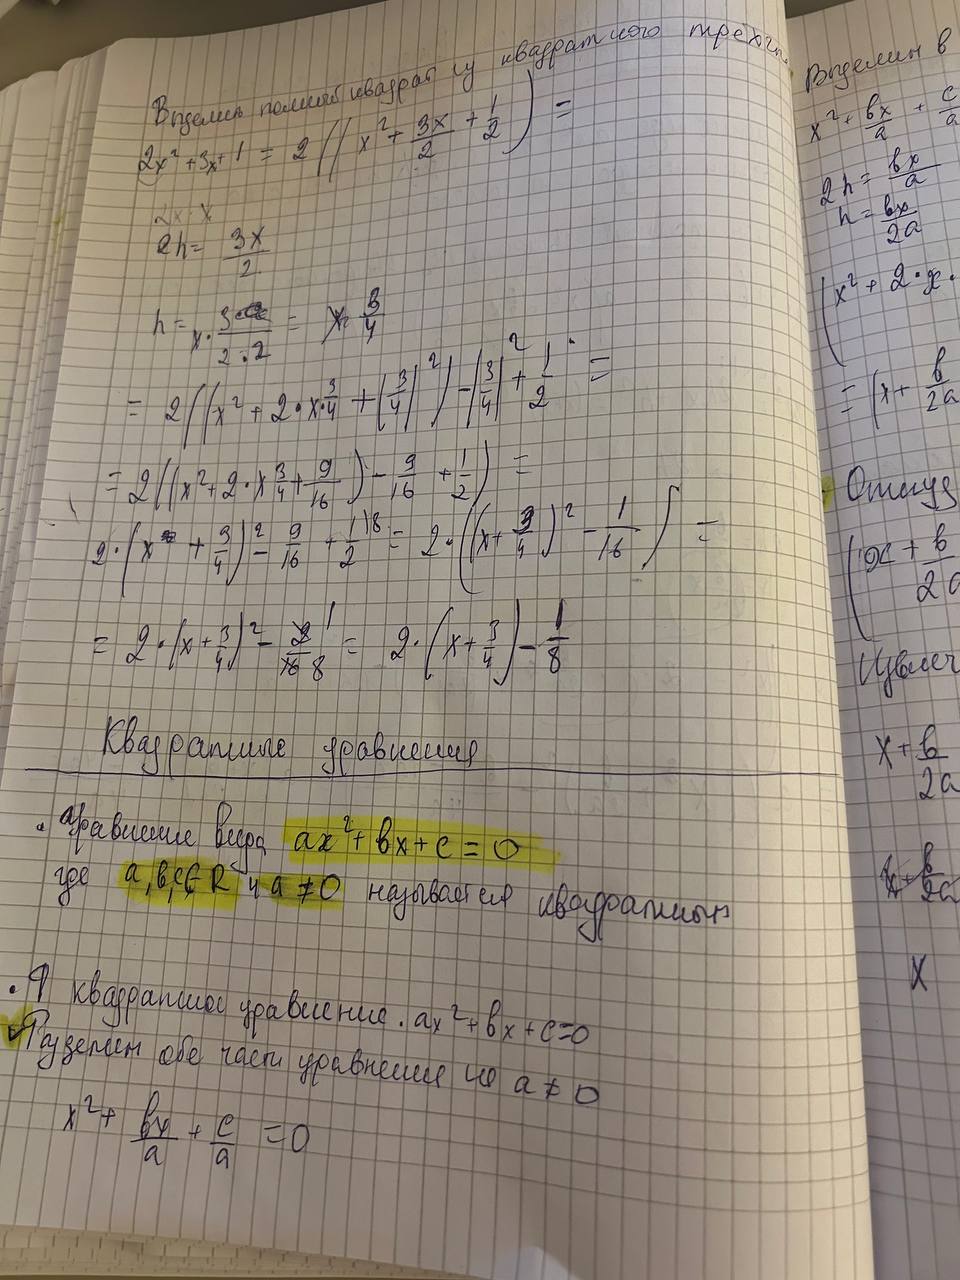 Выделим полный квадрат из квадратного трёхчл.
2x² + 3x + 1 = 2((x² + 3x/2 + 1/2) =
2x·x
2h = 3x/2
h = x · 3/2·2 = x 3/4
= 2((x² + 2·x·3/4 + (3/4)²) - (3/4)² + 1/2 =
= 2((x² + 2·x 3/4 + 9/16) - 9/16 + 1/2) =
2·(x + 3/4)² - 9/16 + 1/2 |8 = 2·((x + 3/4)² - 1/16) =
= 2·(x + 3/4)² - 2/16 1 8 = 2·(x + 3/4) - 1/8
Квадратные уравнения
· Уравнение вида ax² + bx + c = 0
где a, b, c ∈ R и a ≠ 0 называется квадратным
· Я квадратное уравнение. ax² + bx + c = 0
Разделим обе части уравнения на a ≠ 0
x² + bx/a + c/a = 0
Выделим в
x² + bx/a + c/a
2h = bx/a
h = bx/2a
(x² + 2·x·
= (x + b/2a
Откуд
(x + b/2a
Извлеч
x + b/2a
x + b/2a
x